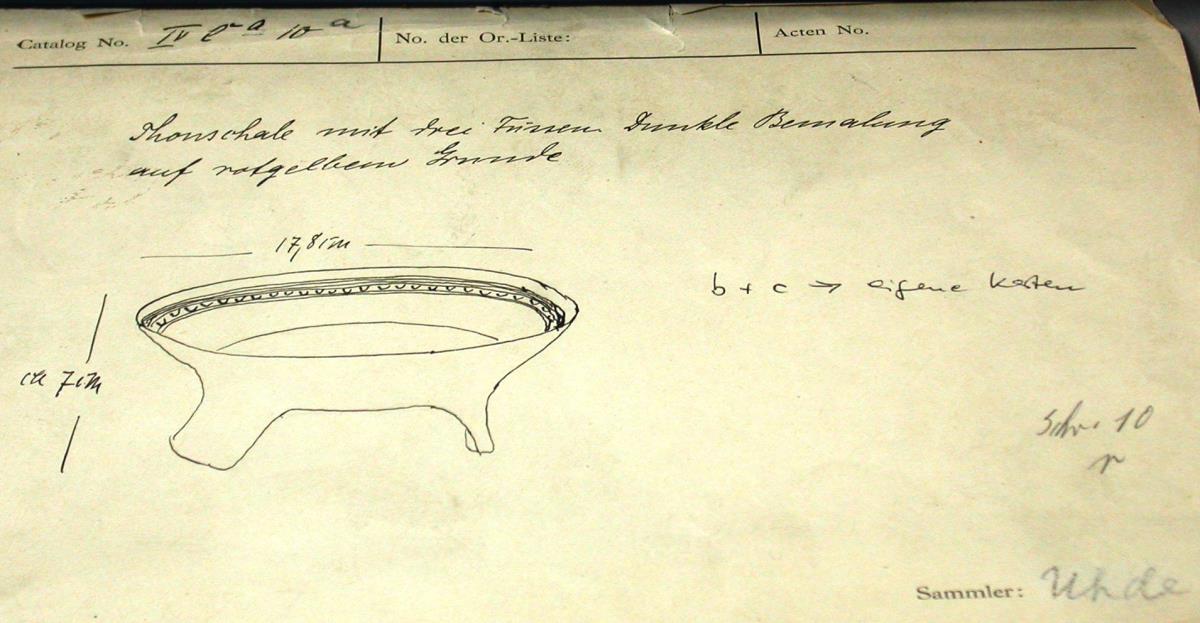 Catalog No. IV Ca 10a
No. der Or.-Liste:
Acten No.
Thonschale mit drei Füssen Dunkle Bemalung
auf rotgelbem Grunde
17,8 cm
b + c → eigene Karten
ca 7 cm
Schr. 10
r
Sammler: Uhde